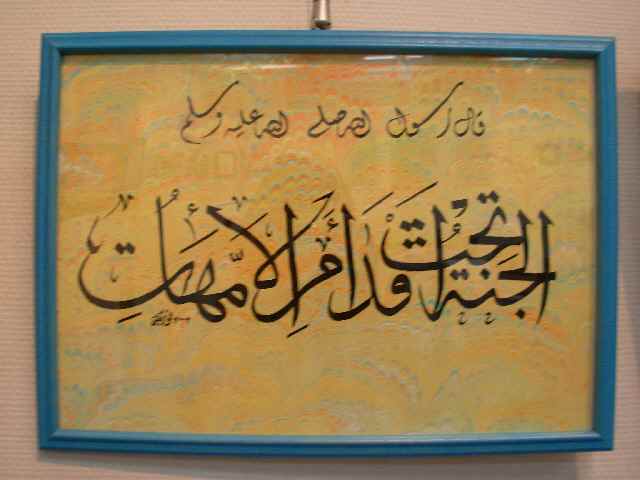 قال رسول الله صلى الله عليه وسلم
الجنة تحت اقدام الأمهات